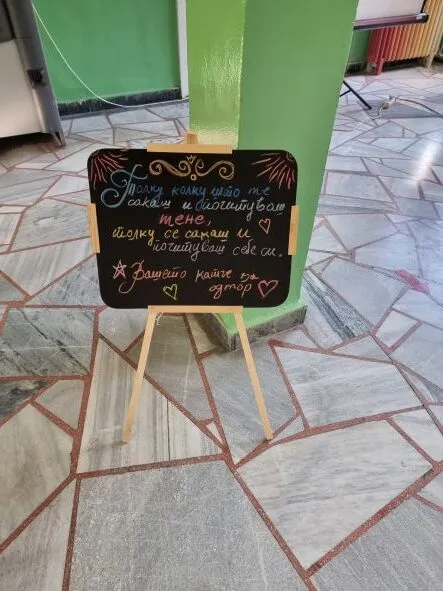 Толку колку што те
сакаш и почитуваш
тене,
толку се сакаш и
почитуваш себе си.
Вашето катче за
одмор